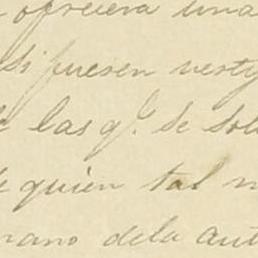 ofreciera una
si fuesen vesty
de las q.e se sol
e quien tal n
mano dela aut